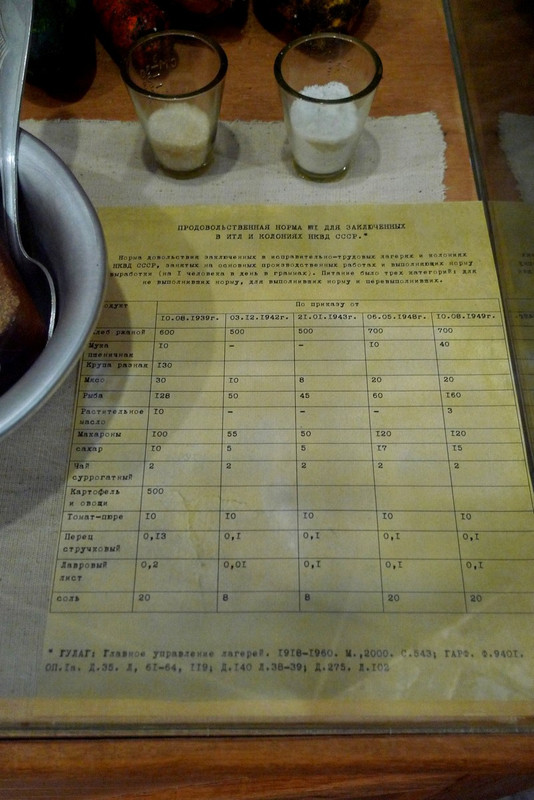 ПРОДОВОЛЬСТВЕННАЯ НОРМА №I ДЛЯ ЗАКЛЮЧЕННЫХ
В ИТЛ И КОЛОНИЯХ НКВД СССР.*
Норма довольствия заключенных в исправительно-трудовых лагерях и колониях
НКВД СССР, занятых на основных производственных работах и выполняющих норму
выработки (на I человека в день в граммах). Питание было трех категорий: для
не выполнявших норму, для выполнявших норму и перевыполнявших.
одукт По приказу от
10.08.1939г. 03.12.1942г. 21.01.1943г. 06.05.1948г. 10.08.1949г.
Хлеб ржаной 600 500 500 700 700
Мука 10 – – 10 40
пшеничная
Крупа разная 130
Мясо 30 10 8 20 20
Рыба 128 50 45 60 160
Растительное 10 – – – 3
масло
Макароны 100 55 50 120 120
сахар 10 5 5 17 15
Чай 2 2 2 2 2
суррогатный
Картофель 500
и овощи
Томат-пюре 10 10 10 10 10
Перец 0,13 0,1 0,1 0,1 0,1
стручковый
Лавровый 0,2 0,01 0,1 0,1 0,1
лист
соль 20 8 8 20 20
* ГУЛАГ: Главное управление лагерей. 1918-1960. М.,2000. С.543; ГАРФ. Ф.9401.
ОП.1а. Д.35. Л, 61-64, 119; Д.140 Л.38-39; Д.275. Л.102